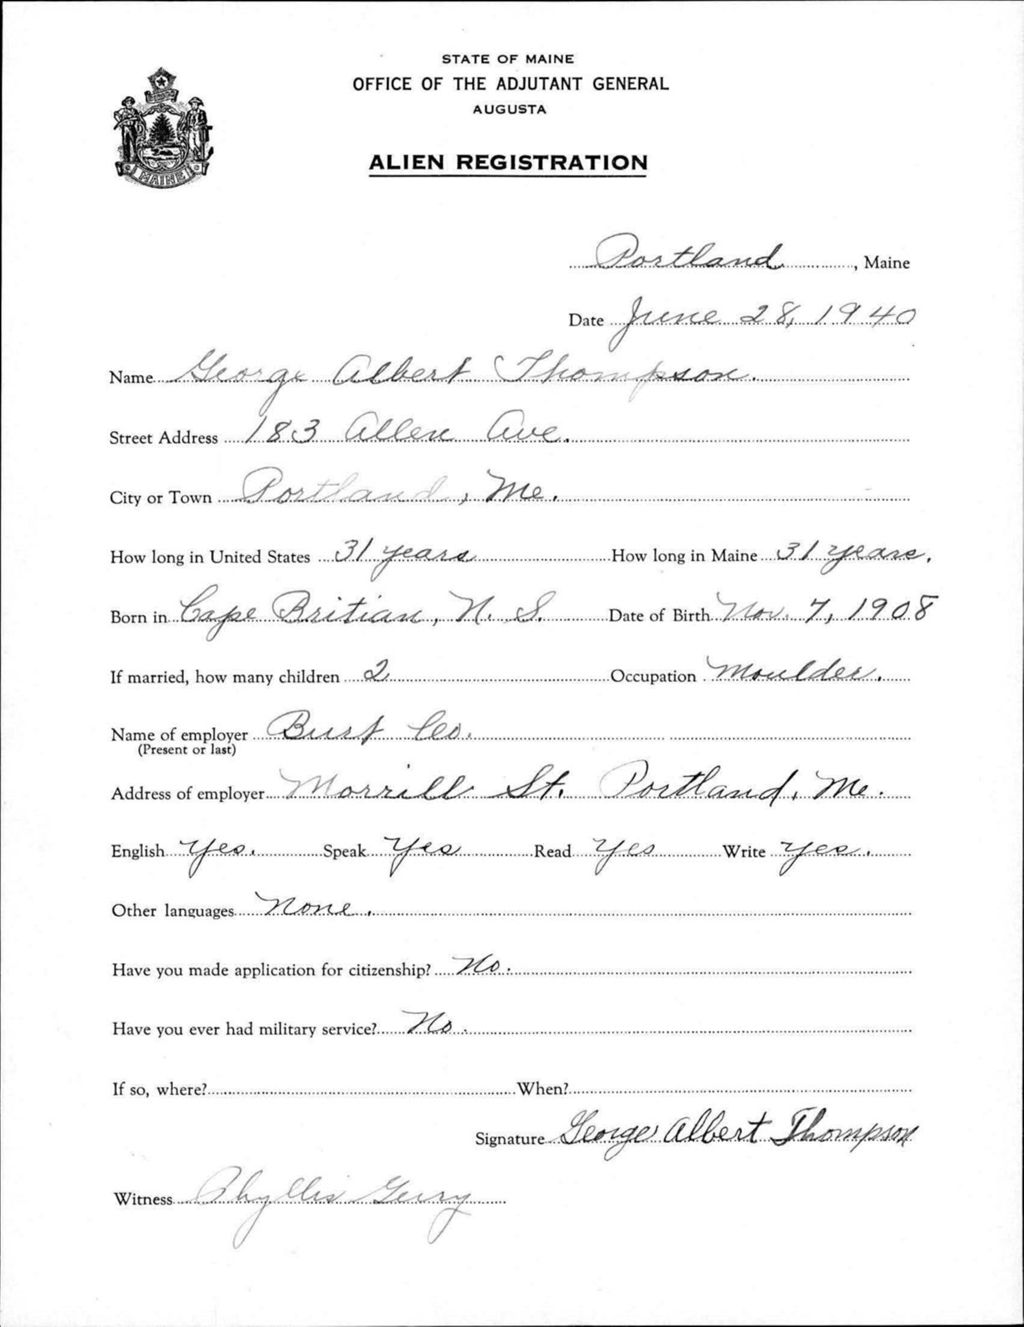 STATE OF MAINE
OFFICE OF THE ADJUTANT GENERAL
AUGUSTA
ALIEN REGISTRATION
MAINE
Portland, Maine
Date June 28, 1940
Name George Albert Thompson.
Street Address 183 Allen Ave.
City or Town Portland, Me.
How long in United States 31 years How long in Maine 31 years.
Born in Cape Britian, N. S. Date of Birth Nov. 7, 1908
If married, how many children 2 Occupation Moulder.
Name of employer Burt Co.
(Present or last)
Address of employer Morrill St. Portland, Me.
English Yes. Speak Yes Read Yes Write Yes.
Other languages None.
Have you made application for citizenship? No.
Have you ever had military service? No.
If so, where? When?
Signature George Albert Thompson
Witness Phyllis Gerry